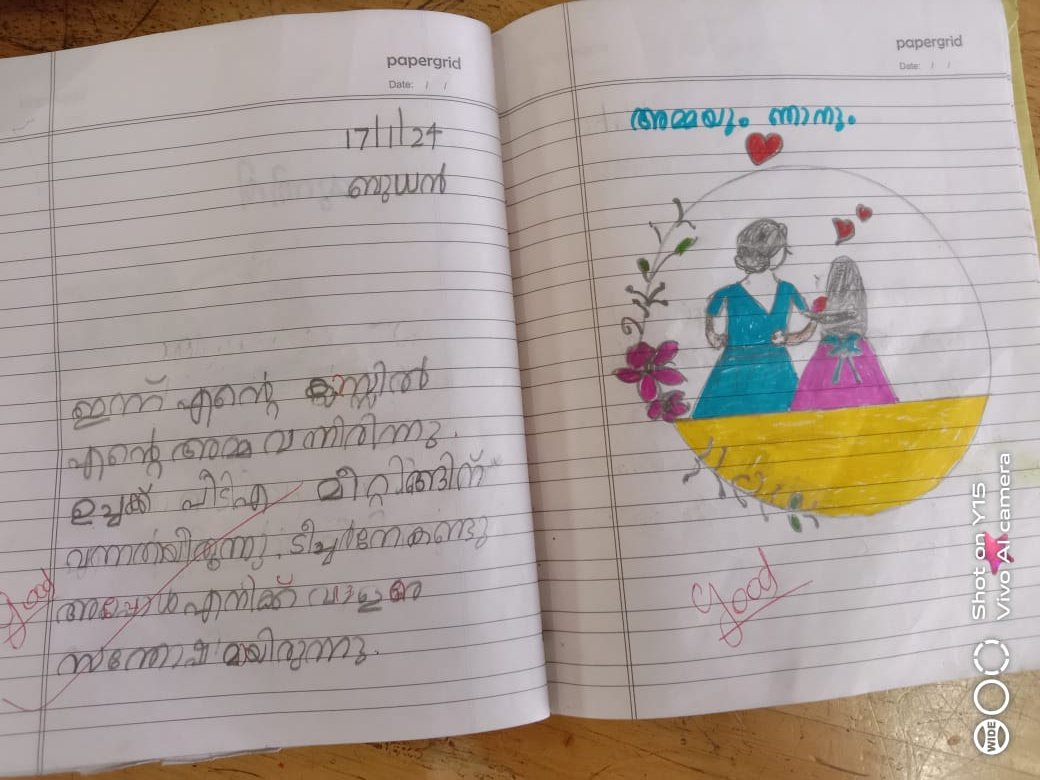 papergrid
Date: / /
17/1/24
ബുധൻ
ഇന്ന് എന്റെ ക്ലാസ്സിൽ
എന്റെ അമ്മ വന്നിരിന്നു.
ഉച്ചക്ക് പിടിഎ മീറ്റിങ്ങിന്
വന്നതായിരുന്നു. ടീച്ചർനേകണ്ടു
അപ്പോൾ എനിക്ക് വളരെ
സന്തോഷമായിരുന്നു.
Good
papergrid
Date: / /
അമ്മയും ഞാനും.
Good
Shot on Y15
Vivo AI camera
WIDE